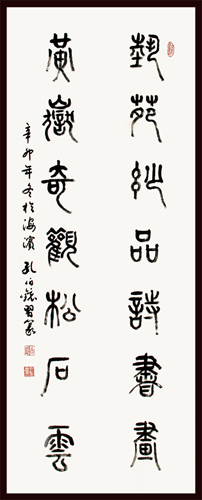 藝苑妙品詩書畫
黃嶽奇觀松石雲
辛卯年冬於海濱孔伯銘習篆